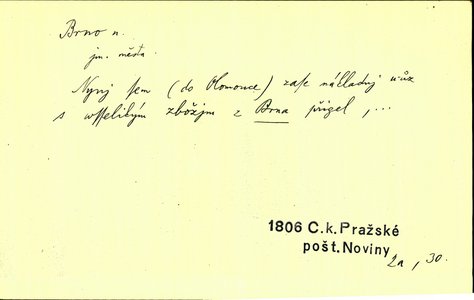 Brno n.
jm. města.
Nynj sem (do Olomouce) zase nákladnj wůz
s wsselikým zbožjm z Brna přigel, ...
1806 C. k. Pražské
pošt. Noviny
2a, 30.